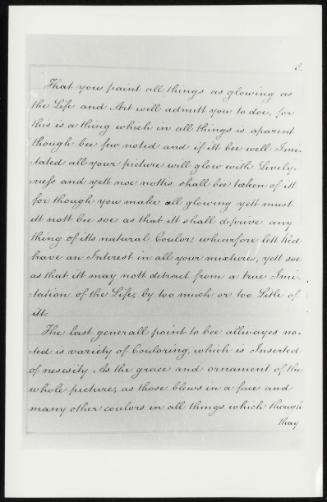 2.
That you paint all things as glowing as
the Life and Art will admitt you to doe, for
this is a thing which in all things is aparent
though bee few noted and if itt bee well Imi-
tated all your picture will glow with Lively-
ness and yett noe nottis shall bee taken of itt
for though you make all glowing yett must
itt nott bee soe as that itt shall deprive any
thing of itts natural Coulor: whearfore lett Red
have an Interest in all your mixtures, yett soe
as that itt may nott detract from a true Imi-
tation of the Life, by too much or too Little of
itt.
The last generall point to bee allwayes no-
ted is variety of Couloring, which is Inserted
of nesesity As the grace and ornament of the
whole pictures, as those blews in a face and
many other coulors in all things which though
thay